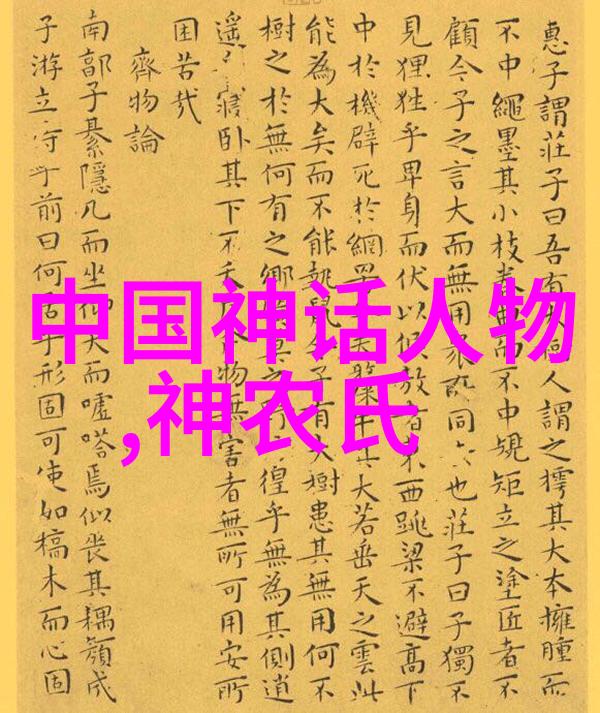 惠子謂莊子曰吾有人謂之樗其大本擁腫而
不中繩墨其小枝卷曲而不中規矩立之塗匠者不
顧今子之言大而無用眾所同也莊子曰子獨不
見狸狌乎卑身而伏以候敖者東西跳梁不避高下
中於機辟死於網罟斄牛其大若垂天之雲此
能為大矣而不能執鼠今子有大樹患其無用何不
樹之於無何有之鄉莫之徨乎無為其側逍
遙寢卧其下不夭物無害者無所可用安所
困苦哉
齊物論
南郭子綦隱几而坐仰天而噓嗒焉似喪其耦顏成
子游立侍乎前曰何居乎形固可使如槁木而心固
中国神话人物
,神农氏